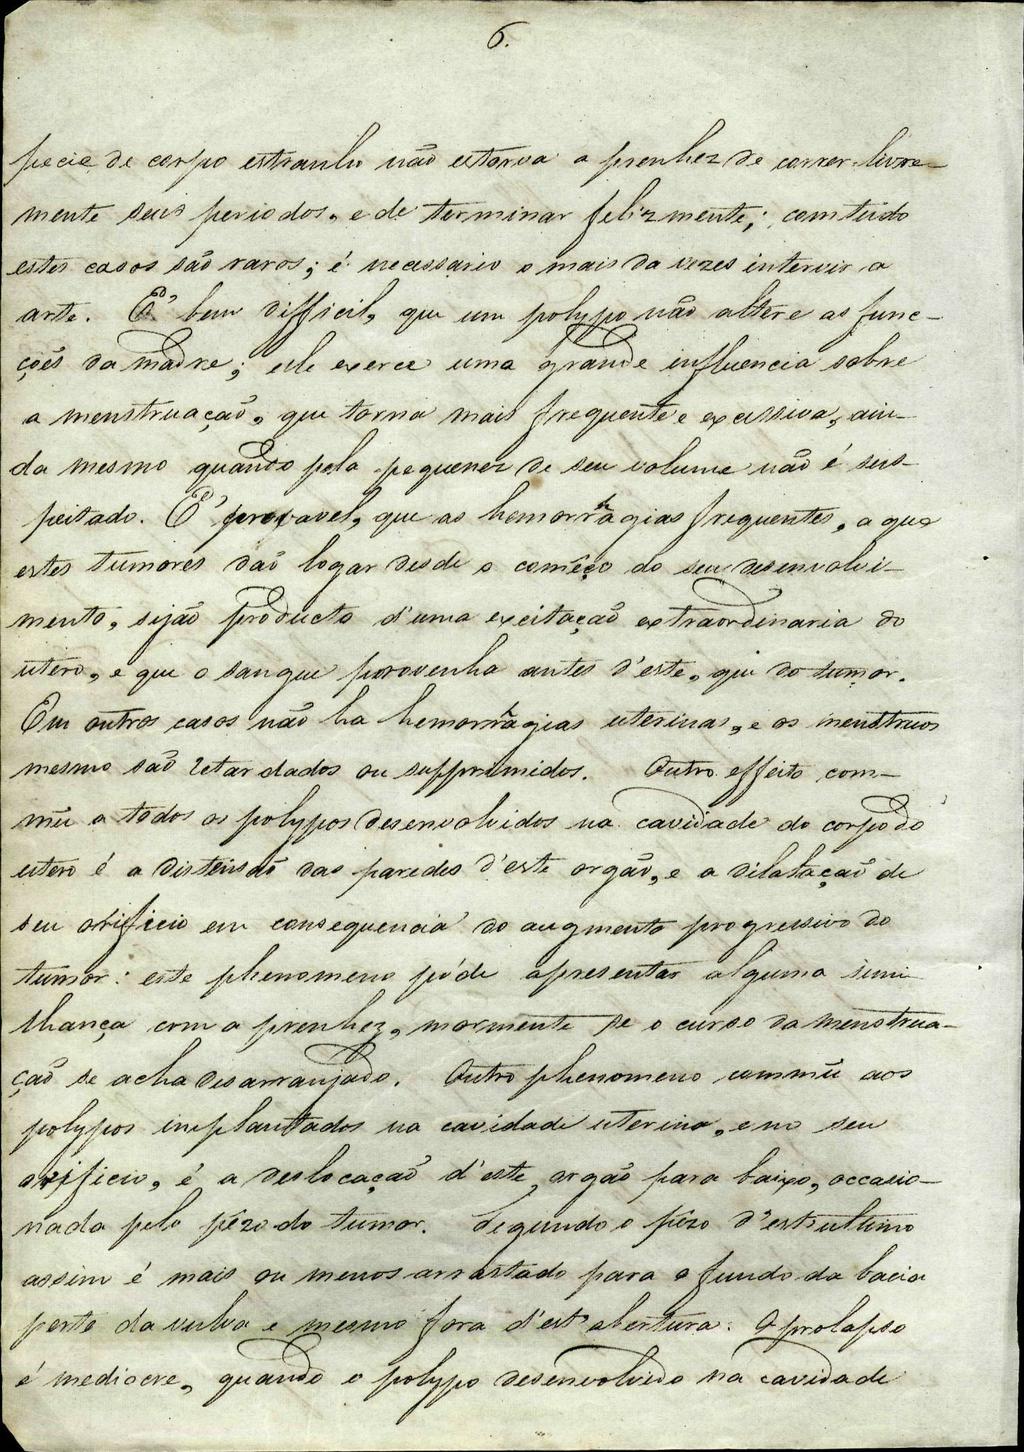 6.
pecie de corpo estranho não estorva a prenhez de correr livre-
mente seus periodos, e de terminar felizmente; comtudo
estes casos são raros; é necessario o mais da vezes intervir a
arte. É bem difficil, que um polypo não altere as func-
ções da madre; elle exerce uma grande influencia sobre
a menstruação, que torna mais frequente e excessiva, ain-
da mesmo quando pela pequenez de seu volume não é sus-
peitado. É provavel, que as hemorrhagias frequentes, a que
estes tumores dão logar desde o comêço do seu desenvolvi-
mento, sejão producto d'uma excitação extraordinaria do
utero, e que o sangue provenha antes d'este, que do tumor.
Em outros casos não ha hemorrhagias uterinas, e os menstruos
mesmo são retardados ou supprimidos. Outro effeito com-
mũ a todos os polypos desenvolvidos na cavidade do corpo do
utero é a distensão das paredes d'este orgão, e a dilatação de
seu orificio em consequencia do augmento progressivo do
tumor: este phenomeno póde apresentar alguma simi
lhança com a prenhez, mormente se o curso da menstrua-
ção se acha desarranjado. Outro phenomeno commũ aos
polypos implantados na cavidade uterina, e no seu
orificio, é a deslocação d'este orgão para baixo, occasio-
nada pelo pêzo do tumor. Segundo o pêzo d'este ultimo
assim é mais ou menos arrastado para o fundo da bacia
perto da vulva e mesmo fora d'est'abertura. O prolapso
é mediocre, quando o polypo desenvolvido na cavidade